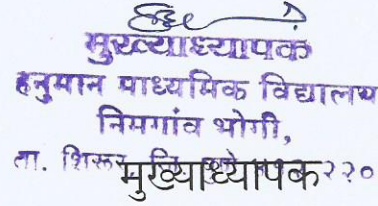 मुख्याध्यापक
हनुमान माध्यमिक विद्यालय
निमगांव भोगी,
ता. शिरूर २२०
मुख्याध्यापक